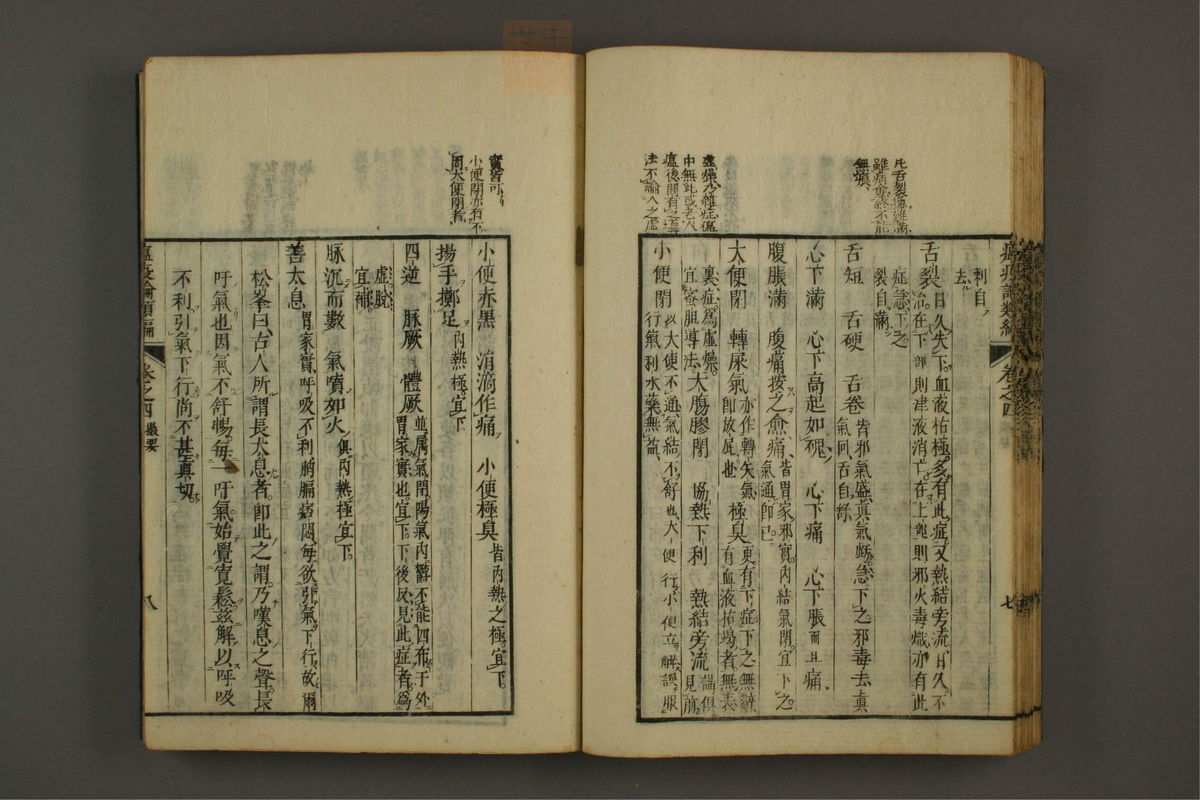 凡舌裂復雖滿
無損
利自
去
舌裂 日久失下血液枯極多有此症又熱結旁流日久不
治在下部則津液消亡在上則邪火毒熾亦有此
症急下之
裂自滿
舌短 舌硬 舌卷 皆邪氣盛真氣虧急下之邪毒去真
氣回舌自舒
心下滿 心下高起如塊 心下痛 心下脹而且痛
腹脹滿 腹痛按之愈痛 皆胃家邪實內結氣閉宜下之
氣通即已
虛燥少雜症瘟
中無此或老人
瘟後間有之等
法不論人之虛
大便閉 轉屎氣 亦作轉失氣
即放屁也 極臭 更有下症下之無辭
有血液枯竭者無表
裏症爲虛燥
宜蜜胆導法 大腸膠閉 協熱下利 熱結旁流 論俱
見前
小便閉 以大便不通氣結不舒也大便行小便立解誤服
行氣利水藥無益
七
實皆可
小便閉亦有不
因大便閉者
小便赤黑 涓滴作痛 小便極臭 皆內熱之極宜下
揚手擲足 內熱極宜下
四逆 脉厥 體厥 並屬氣閉陽氣內鬱不能四布于外
胃家實也宜下下後反見此症者爲
虛脫
宜補
脉沉而數 氣噴如火 俱內熱極宜下
善太息 胃家實呼吸不利胸膈痞悶每欲引氣下行故爾
松峯曰古人所謂長太息者卽此之謂乃嘆息之聲長
吁氣也因氣不舒暢每一吁氣始覺寬鬆茲解以呼吸
不利引氣下行尚不甚真切
瘟疫論類編 卷之四 撮要 八